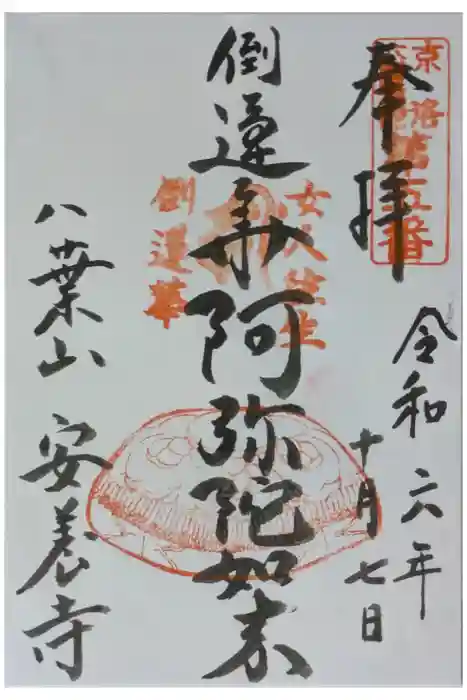 奉拝
京洛
第五番
令和六年
十月七日
倒蓮華阿弥陀如来
女人往生
倒蓮華
八葉山 安養寺